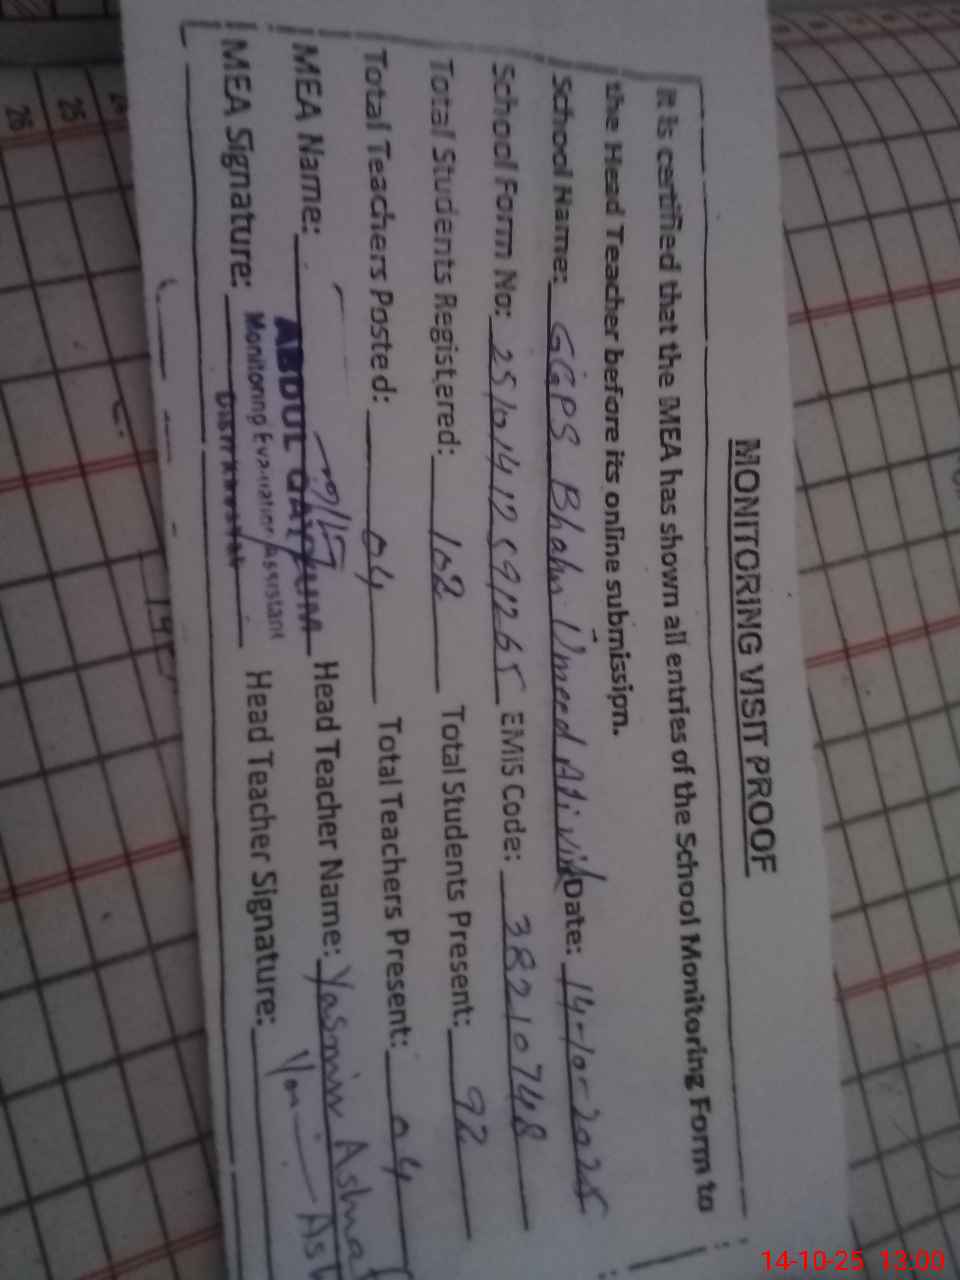 MONITORING VISIT PROOF
It is certified that the MEA has shown all entries of the School Monitoring Form to
the Head Teacher before its online submission.
School Name: GGPS Bhahu Umeed Ali Date: 14-10-2025
School Form No: EMIS Code: 38210748
Total Students Registered: 102 Total Students Present: 92
Total Teachers Posted: 04 Total Teachers Present: 04
MEA Name: ABDUL QAYYUM Head Teacher Name: Yasmin
Monitoring Evaluation Assistant
MEA Signature: Head Teacher Signature:
26
25
14-10-25 13:00